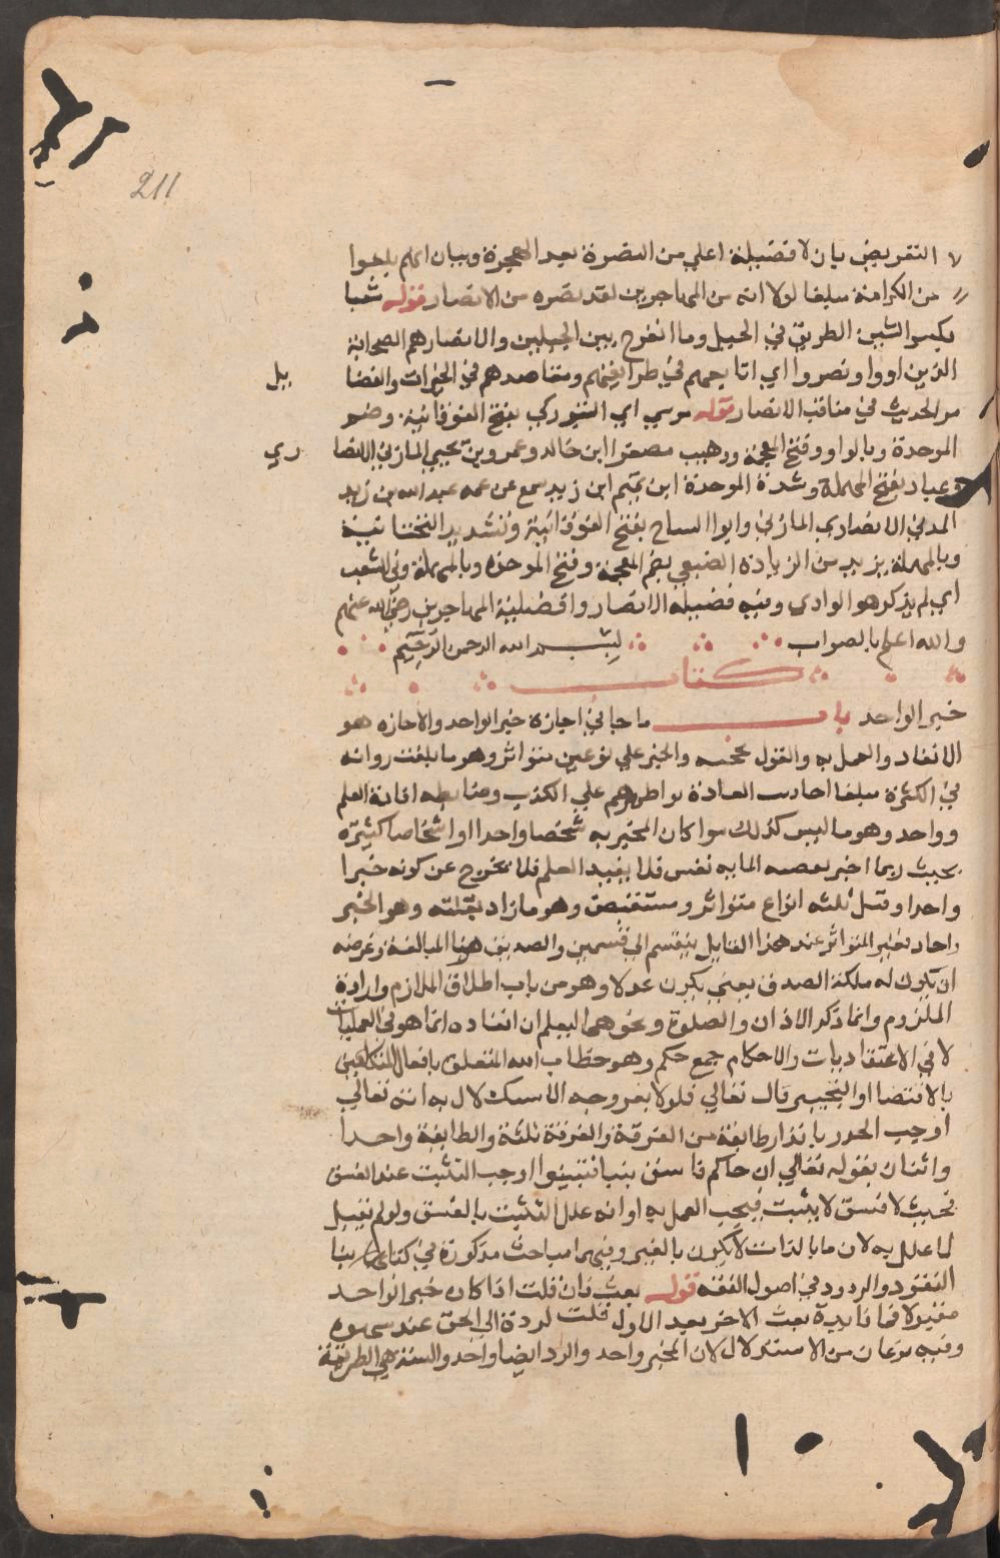 211
التقريض بان لا فضيلة اعلى من النصرة بعد الهجرة وبيان انهم بلغوا
من الكرامة مبلغا لولا انه من المهاجرين لعد نفسه من الانصار قوله شعبا
بكسر الشين الطريق في الجبل وما انفرج بين الجبلين والانصار هم الصحابة
الذين اووا ونصروا اي اتابعهم في طرايقهم ومقاصدهم في الخيرات والفضا
يل
مر الحديث في مناقب الانصار قوله موسى اي التبوذكي بفتح الفوقانية وضم
الموحدة وبالواو وفتح المعجمة ووهيب مصغرا ابن خالد وعمرو بن يحيى المازني الانصا
ري
وعباد بفتح المهملة وشدة الموحدة ابن تميم ابن زيد سمع عن عمه عبد الله بن زيد
المدني الانصاري المازني وابو التياح بفتح الفوقانية وتشديد التحتانية
وبالمهملة يزيد من الزيادة الضبعي بضم المعجمة وفتح الموحدة وبالمهملة وفي الشعب
اي لم يذكر هو الوادي وفيه فضيلة الانصار وافضلية المهاجرين رضي الله عنهم
والله اعلم بالصواب بسم الله الرحمن الرحيم
كتاب
خبر الواحد باب ما جا في اجازة خبر الواحد والاجازه هو
الانفاد والعمل به والقول بحجيته والخبر على نوعين متواتر وهو ما بلغت رواته
في الكثرة مبلغا احالت العادة تواطؤهم على الكذب وضابطه افادة العلم
وواحد وهو ما ليس كذلك سوا كان المخبر به شخصا واحدا او اشخاصا كثيرة
بحيث ربما اخبر بقصيه الماية نفس فلا يفيد العلم فلا يخرج عن كونه خبرا
واحدا وقيل ثلثه انواع متواتر ومستفيض وهو ما زاد نقلته وهو الخبر
واحاد فخبر المتواتر عند هذا القايل ينقسم الى قسمين والصديق هو بنا المبالغة وغرضه
ان يكون له ملكة الصدق يعني يكون عدلا وهو من باب اطلاق الملازم وارادة
الملزوم وانما ذكر الاذان والصلوة ونحوهما ليعلم ان انفاده انما هو في العمليات
لا في الاعتقاديات والاحكام جمع حكم وهو خطاب الله المتعلق بافعال المكلفين
بالاقتضا او التخيير قال تعالى فلولا نفر وجه الاستدلال به انه تعالى
اوجب الحذر بانذار طايفة من الفرقة والفرقة ثلثة والطايفة واحدا
واثنان بقوله تعالى ان جاكم فاسق بنبا فتبينوا اوجب التثبت عند الفسق
فحيث لا فسق لا يثبت فيجب العمل به او انه علل التثبت بالفسق ولو لم نقبل
لما علل به لان ما بالذات لا يكون بالغير وفيهما مباحث مذكورة في كتابنا
النقود والردود في اصول الفقه قوله بعث فان قلت اذا كان خبر الواحد
مقبولا فما فايدة بعث الاخر بعد الاول قلت لرده الى الحق عند سهوه
وفيه نوعان من الاستدلال لان المخبر واحد والراد ايضا واحد والسنة هي الطريقة